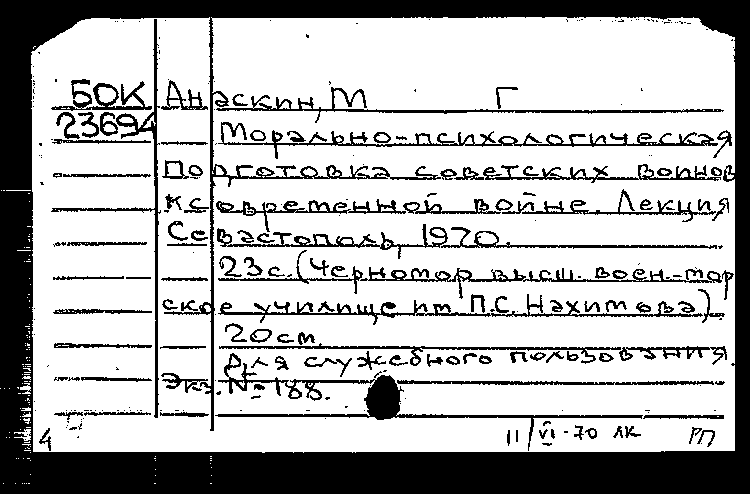 БОК Анаскин, М Г
23694 Морально-психологическая
подготовка советских воинов
к современной войне. Лекция
Севастополь, 1970.
23с. (Черномор высш. воен.-мор
ское училище им. П.С. Нахимова)
20см.
Для служебного пользования.
Экз. № 188.
4 11/VI-70 ЛК РП